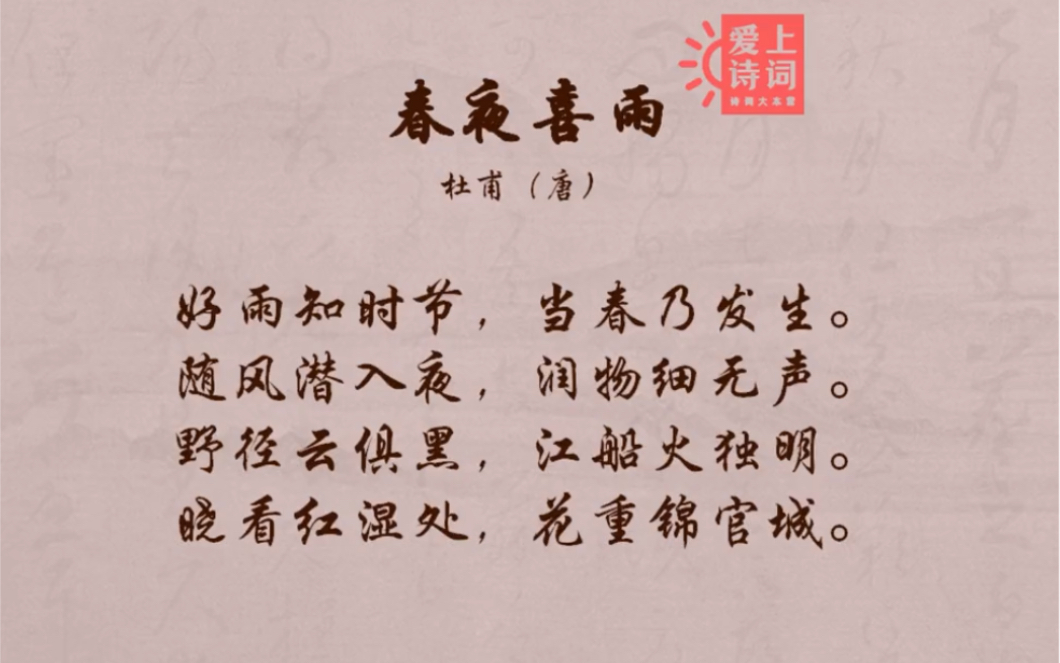 爱上
诗词
诗词大本营
春夜喜雨
杜甫（唐）
好雨知时节，当春乃发生。
随风潜入夜，润物细无声。
野径云俱黑，江船火独明。
晓看红湿处，花重锦官城。